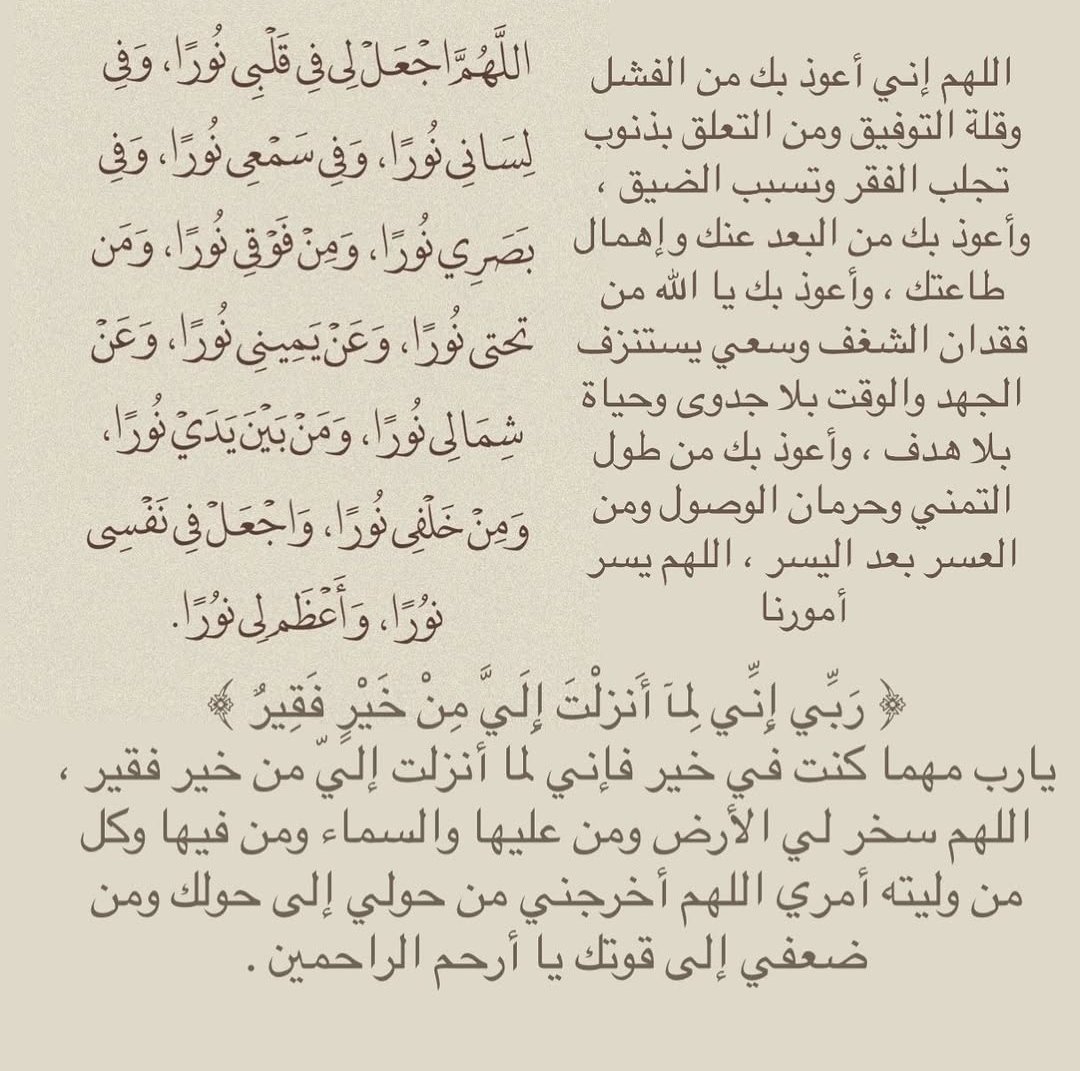 اللهم إني أعوذ بك من الفشل
وقلة التوفيق ومن التعلق بذنوب
تجلب الفقر وتسبب الضيق ،
وأعوذ بك من البعد عنك وإهمال
طاعتك ، وأعوذ بك يا الله من
فقدان الشغف وسعي يستنزف
الجهد والوقت بلا جدوى وحياة
بلا هدف ، وأعوذ بك من طول
التمني وحرمان الوصول ومن
العسر بعد اليسر ، اللهم يسر
أمورنا
اللَّهُمَّ اجْعَلْ لِي فِي قَلْبِي نُورًا، وَفِي
لِسَانِي نُورًا، وَفِي سَمْعِي نُورًا، وَفِي
بَصَرِي نُورًا، وَمِنْ فَوْقِي نُورًا، وَمَن
تحتى نُورًا، وَعَنْ يَمِينِي نُورًا، وَعَنْ
شِمَالِي نُورًا، وَمَنْ بَيْنَ يَدَيْ نُورًا،
وَمِنْ خَلْفِي نُورًا، وَاجْعَلْ فِي نَفْسِي
نُورًا، وَأَعْظَم لِي نُورًا.
﴿ رَبِّي إِنِّي لِمَآ أَنزلْتَ إِلَيَّ مِنْ خَيْرٍ فَقِيرٌ ﴾
يارب مهما كنت في خير فإني لما أنزلت إليّ من خير فقير ،
اللهم سخر لي الأرض ومن عليها والسماء ومن فيها وكل
من وليته أمري اللهم أخرجني من حولي إلى حولك ومن
ضعفي إلى قوتك يا أرحم الراحمين .